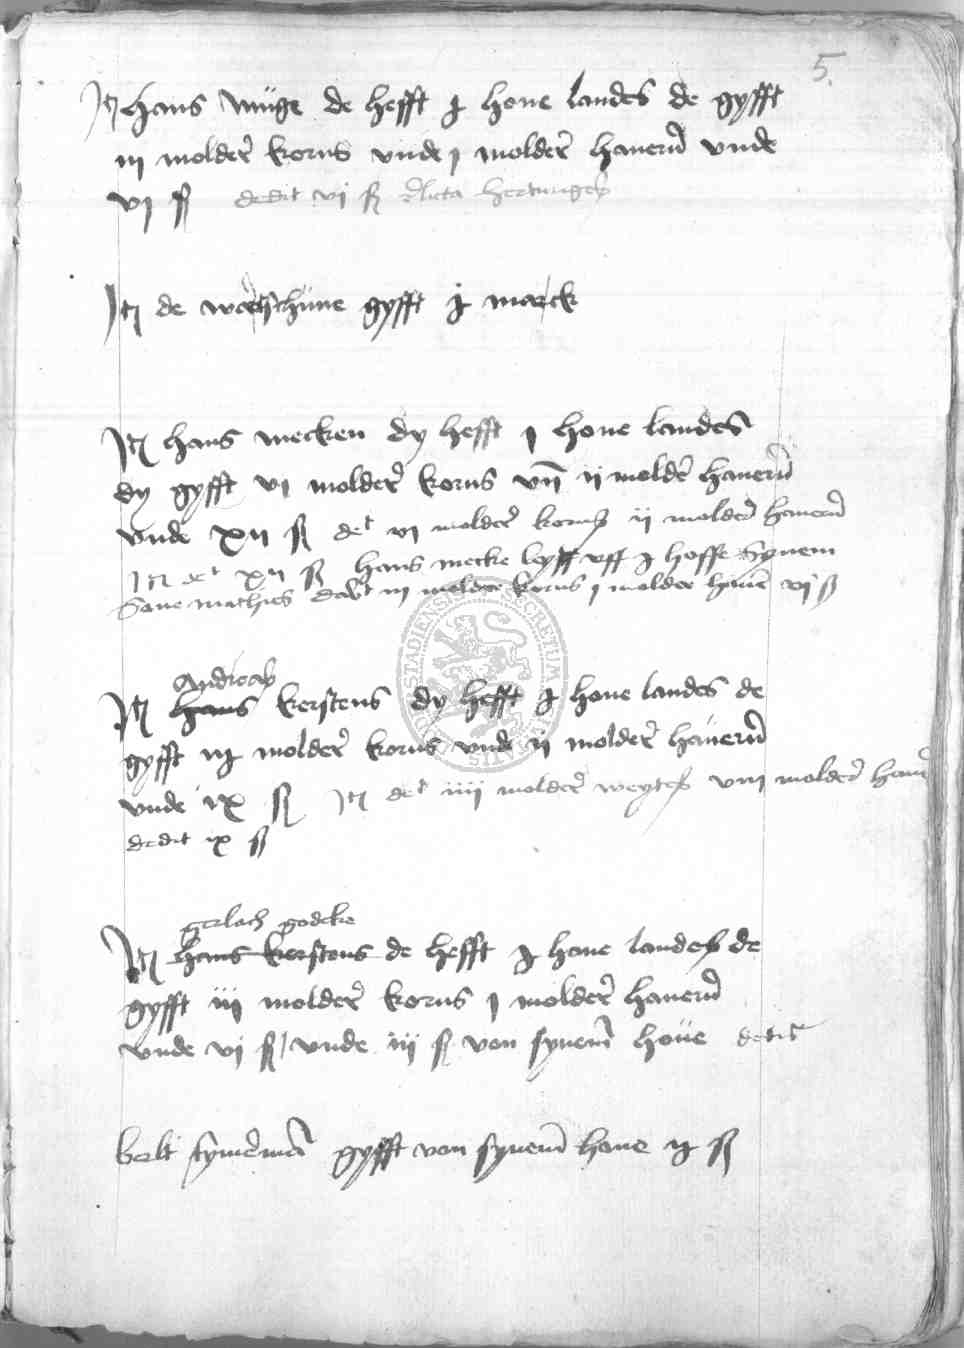 5
Itm hans de hefft j houe landes de gyfft
iij molder korns vnde j molder hauern vnde
vj ß dedit vj ß relicta hertunges
Itm de gyfft j marck
Itm hans mecken dy hefft j houe landes
dy gyfft vj molder korns vn ij molder hauern
vnde xij ß det vj molder korns ij molder hauern
Itm det xij ß hans mecke leyff vff j hoffe synem
Sone mathies iij molder korns j molder hauer vj ß
Andreas
Itm hans kerstens dy hefft j houe landes de
gyfft iij molder korns vnde ij molder hauern
vnde ix ß Itm det iiij molder weytes viij molder hauer
dedit ix ß
gerlach godeke
Itm hans kerstens de hefft j houe landes de
gyfft iij molder korns j molder hauern
vnde vj ß vnde iij ß von synem houe dedit
berlt tymerman gyfft von synem houe ij ß
SECRETUM